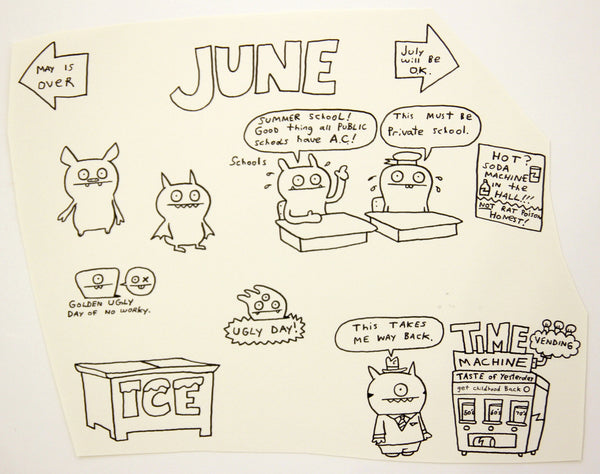 MAY IS
OVER
JUNE
July
will BE
O.K.
SUMMER SCHOOL!
GOOD thing all PUBLIC
schools have A.C.!
Schools
This Must Be
Private school.
HOT?
SODA
MACHINE
in the
HALL!!!
NOT RAT POISON
HONEST!
GOLDEN UGLY
DAY OF NO WORKY.
UGLY DAY!
ICE
This TAKES
ME WAY BACK.
TIME
VENDING
MACHINE
TASTE of Yesterday
get childhood Back
50's 60's 70's